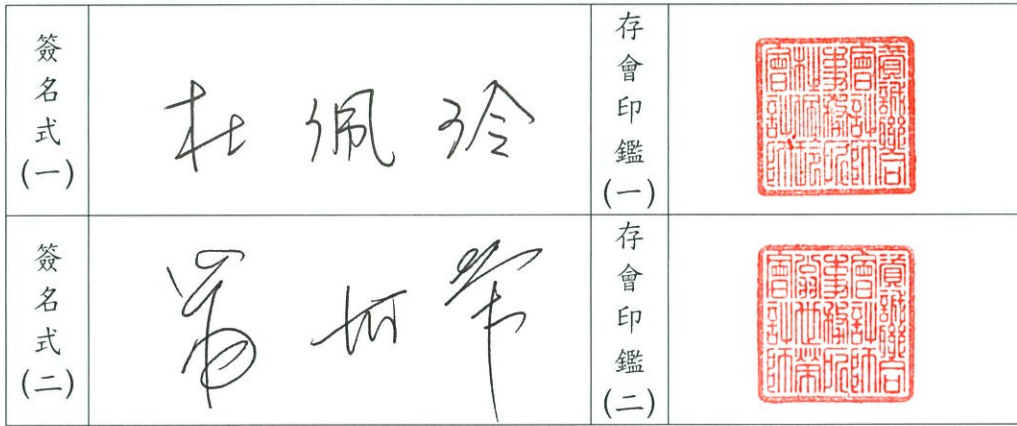 簽名式(一)
杜佩玲
存會印鑑(一)
資誠聯合
會計師
事務所
杜佩玲
會計師
簽名式(二)
翁世榮
存會印鑑(二)
資誠聯合
會計師
事務所
翁世榮
會計師